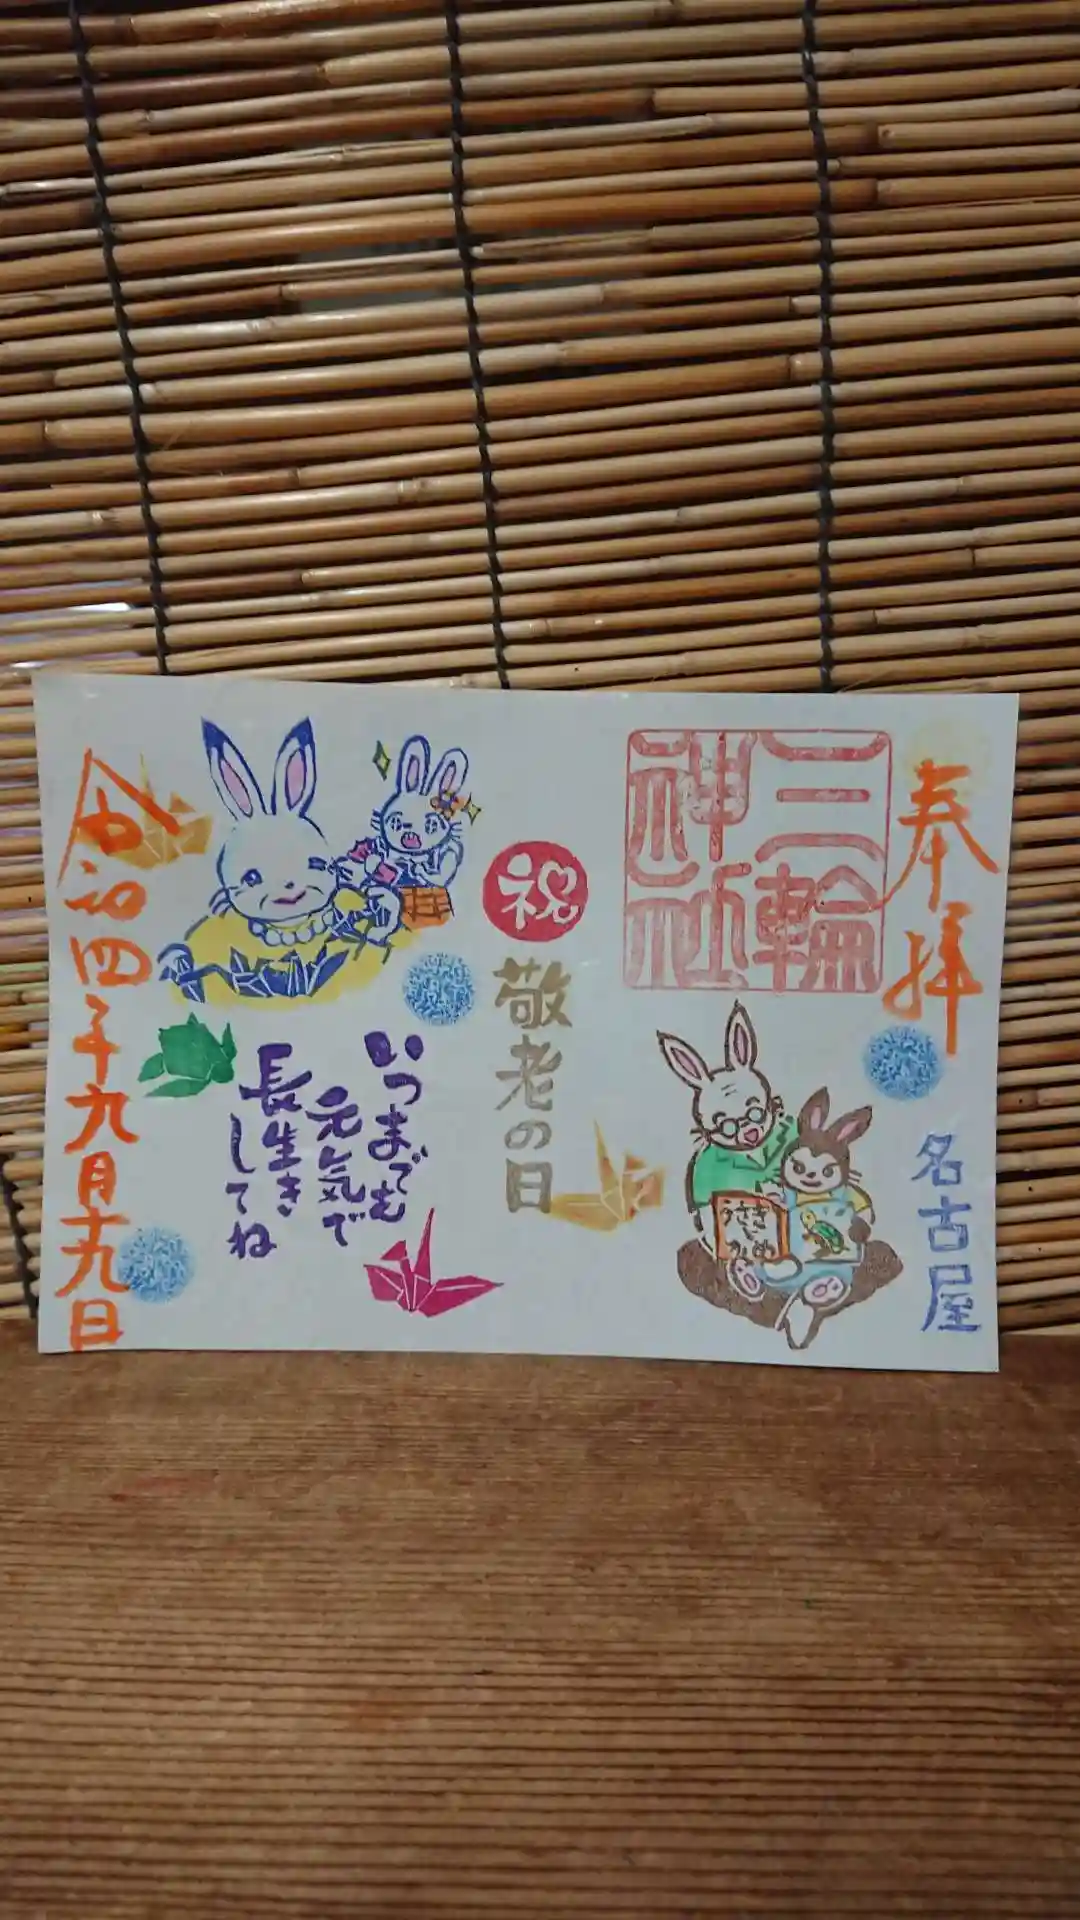 奉拝
名古屋
三輪
神社
うさぎ
と
かめ
祝
敬老の日
いつまでも
元気で
長生き
してね
令和四年九月十九日